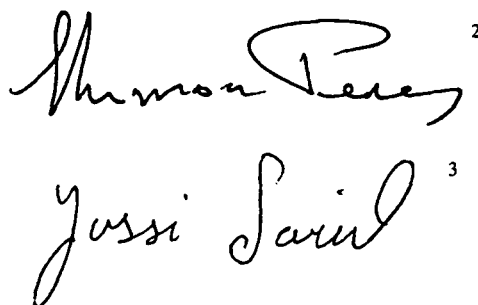 Shimon Peres 2
Yossi Sarid 3